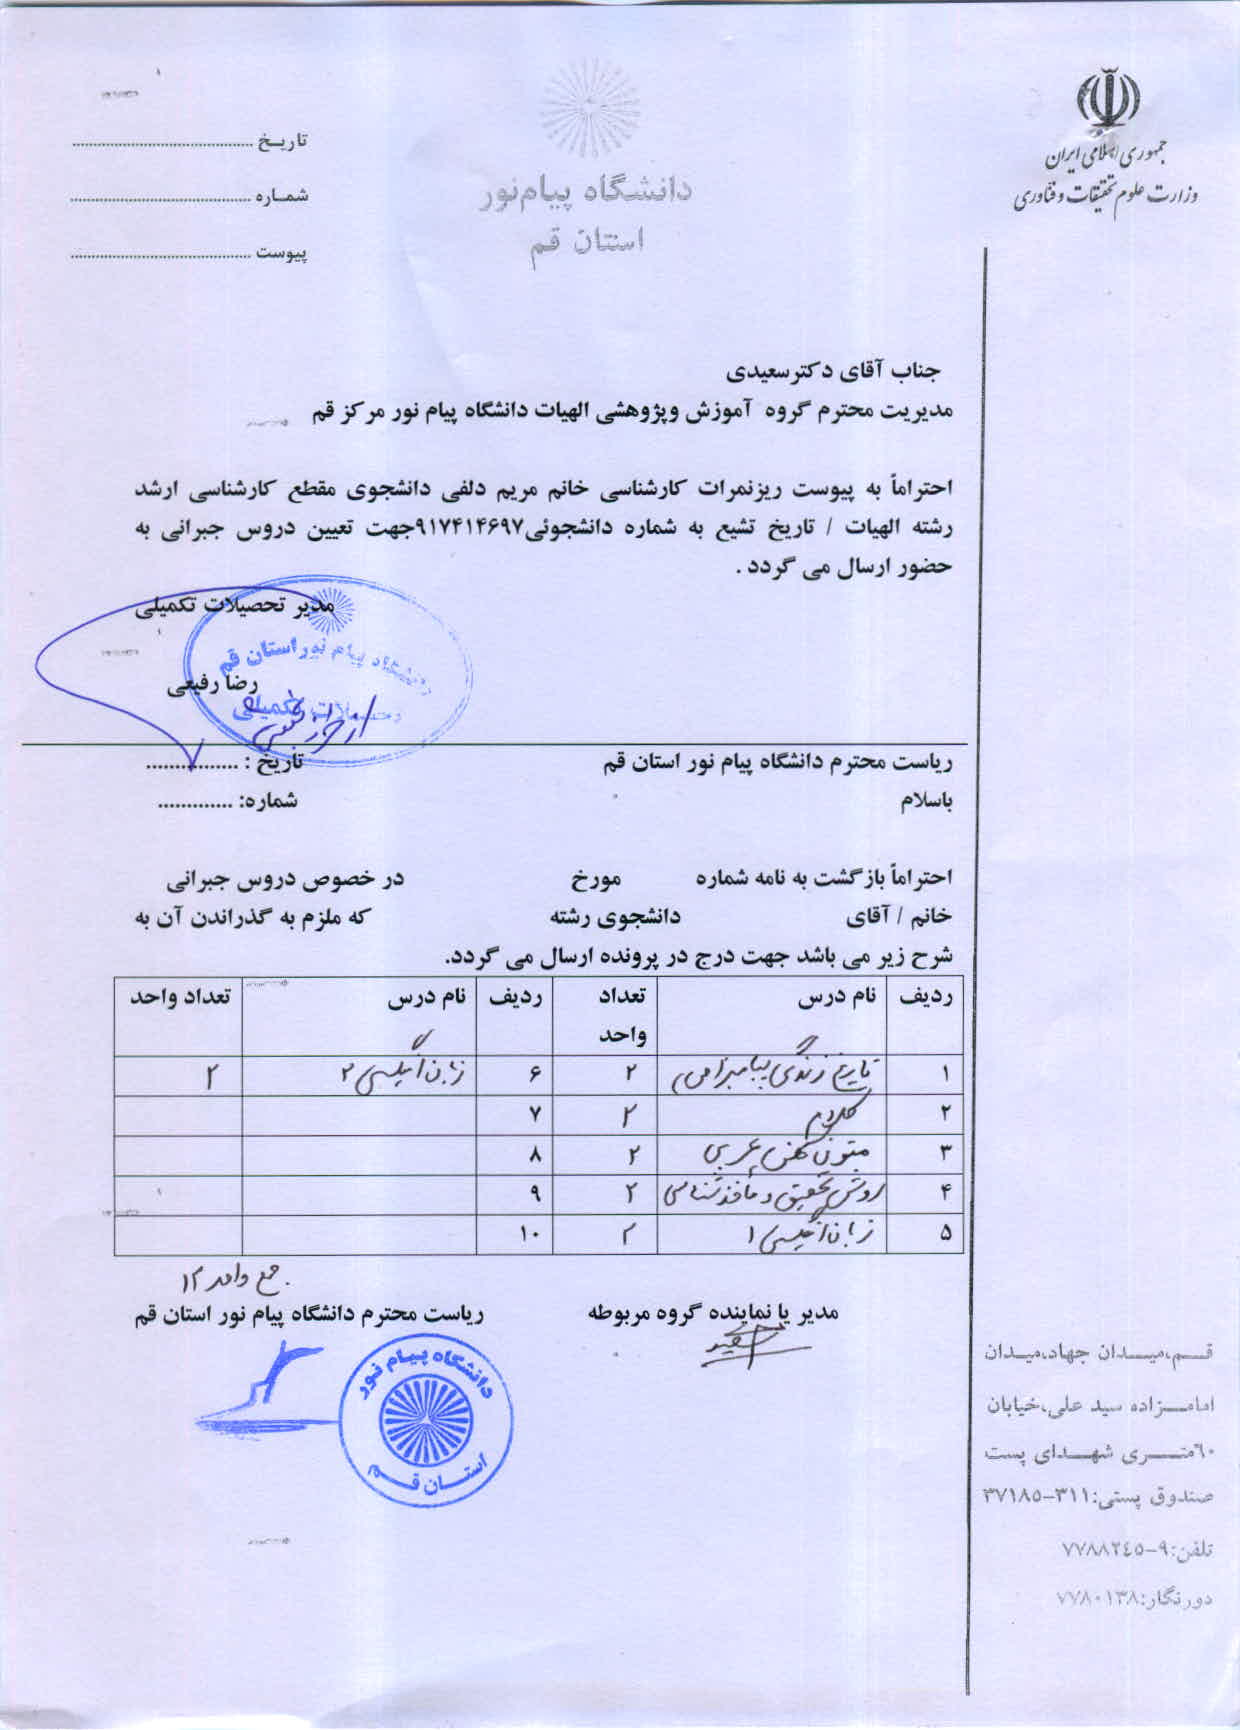 جمهوری اسلامی ایران
وزارت علوم تحقیقات و فناوری
دانشگاه پیام‌نور
استان قم
تاریـخ ..........................................
شمـاره ..........................................
پیوست ..........................................
جناب آقای دکترسعیدی
مدیریت محترم گروه آموزش وپژوهشی الهیات دانشگاه پیام نور مرکز قم
احتراماً به پیوست ریزنمرات کارشناسی خانم مریم دلفی دانشجوی مقطع کارشناسی ارشد
رشته الهیات / تاریخ تشیع به شماره دانشجوئی۹۱۷۴۱۴۶۹۷جهت تعیین دروس جبرانی به
حضور ارسال می گردد .
مدیر تحصیلات تکمیلی
دانشگاه پیام نور استان قم
رضا رفیعی
تحصیلات تکمیلی
ریاست محترم دانشگاه پیام نور استان قم تاریخ : ................
باسلام شماره: .............
احتراماً بازگشت به نامه شماره مورخ در خصوص دروس جبرانی
خانم / آقای دانشجوی رشته که ملزم به گذراندن آن به
شرح زیر می باشد جهت درج در پرونده ارسال می گردد.
ردیف نام درس تعداد واحد ردیف نام درس تعداد واحد
۱ تاریخ زندگی پیامبر اسلام ۲ ۶ زبان انگلیسی ۲ ۲
۲ کلام ۲ ۷
۳ متون کهن عربی ۲ ۸
۴ روش تحقیق و مأخذشناسی ۲ ۹
۵ زبان انگلیسی ۱ ۲ ۱۰
جمع واحد ۱۲
مدیر یا نماینده گروه مربوطه ریاست محترم دانشگاه پیام نور استان قم
دانشگاه پیام نور
استـان قـم
قــم،میــدان جهاد،میـدان
امامــزاده سید علی،خیابان
٦٠متــری شهــدای پست
صندوق پستی:۳۱۱-۳۷۱۸۵
تلفن:۹-۷۷۸۸۲٤٥
دورنگار:۷۷۸۰۱۳۸